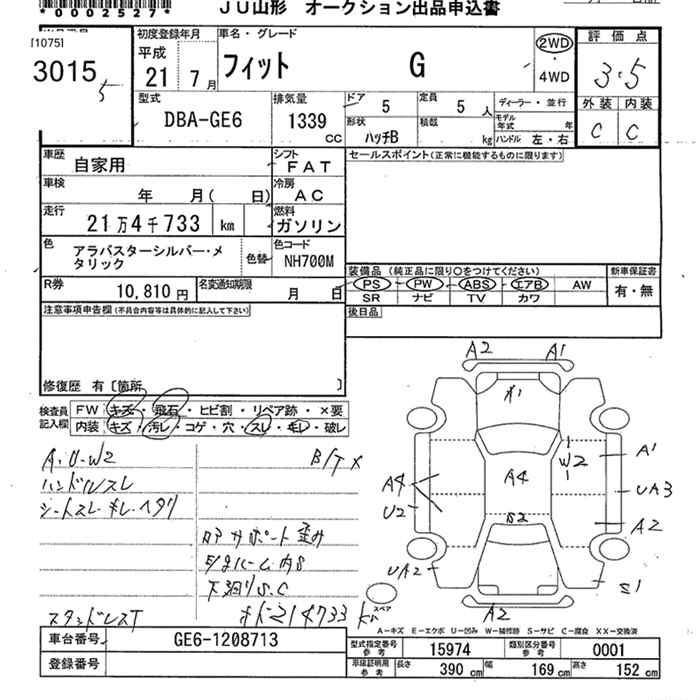 *0002527*
JU山形 オークション出品申込書
[1075]
3015
5
初度登録年月
平成
21年 7月
車名・グレード
フィット G
2WD
4WD
評価点
3.5
外装 内装
C C
型式
DBA-GE6
排気量
1339
CC
ドア 5
定員 5人
形状 ハッチB
積載 kg
ディーラー・並行
モデル年式 年
ハンドル 左・右
車歴 自家用
シフト FAT
セールスポイント(正常に機能するものに限ります)
車検 年 月( 日)
冷房 AC
走行 21万4千733 km
燃料 ガソリン
色 アラバスターシルバー・メタリック
色替
色コード NH700M
R券 10,810円
名変通知期限 月 日
装備品 (純正品に限り○をつけてください)
新車保証書
PS PW ABS エアB AW
SR ナビ TV カワ
有・無
注意事項申告欄(不具合内容等は具体的に記入して下さい)
後日品
修復歴 有〔箇所 〕
検査員記入欄
FW キズ・飛石・ヒビ割・リペア跡・×要
内装 キズ・汚レ・コゲ・穴・スレ・キレ・破レ
A・U・W2
B/T×
ハンドルスレ
シートスレ・キレ・ヘタリ
コアサポート歪み
下廻りS.C
214733
A2 A1
A4
A4
W2
A1
UA3
A2
U2
S2
UA2
S1
A2
スペア
A-キズ E-エクボ U-凹み W-補修跡 S-サビ C-腐食 XX-交換済
車台番号 GE6-1208713
登録番号
型式指定番号 参考 15974
類別区分番号 参考 0001
車庫証明用 参考 長さ 390cm 幅 169cm 高さ 152cm